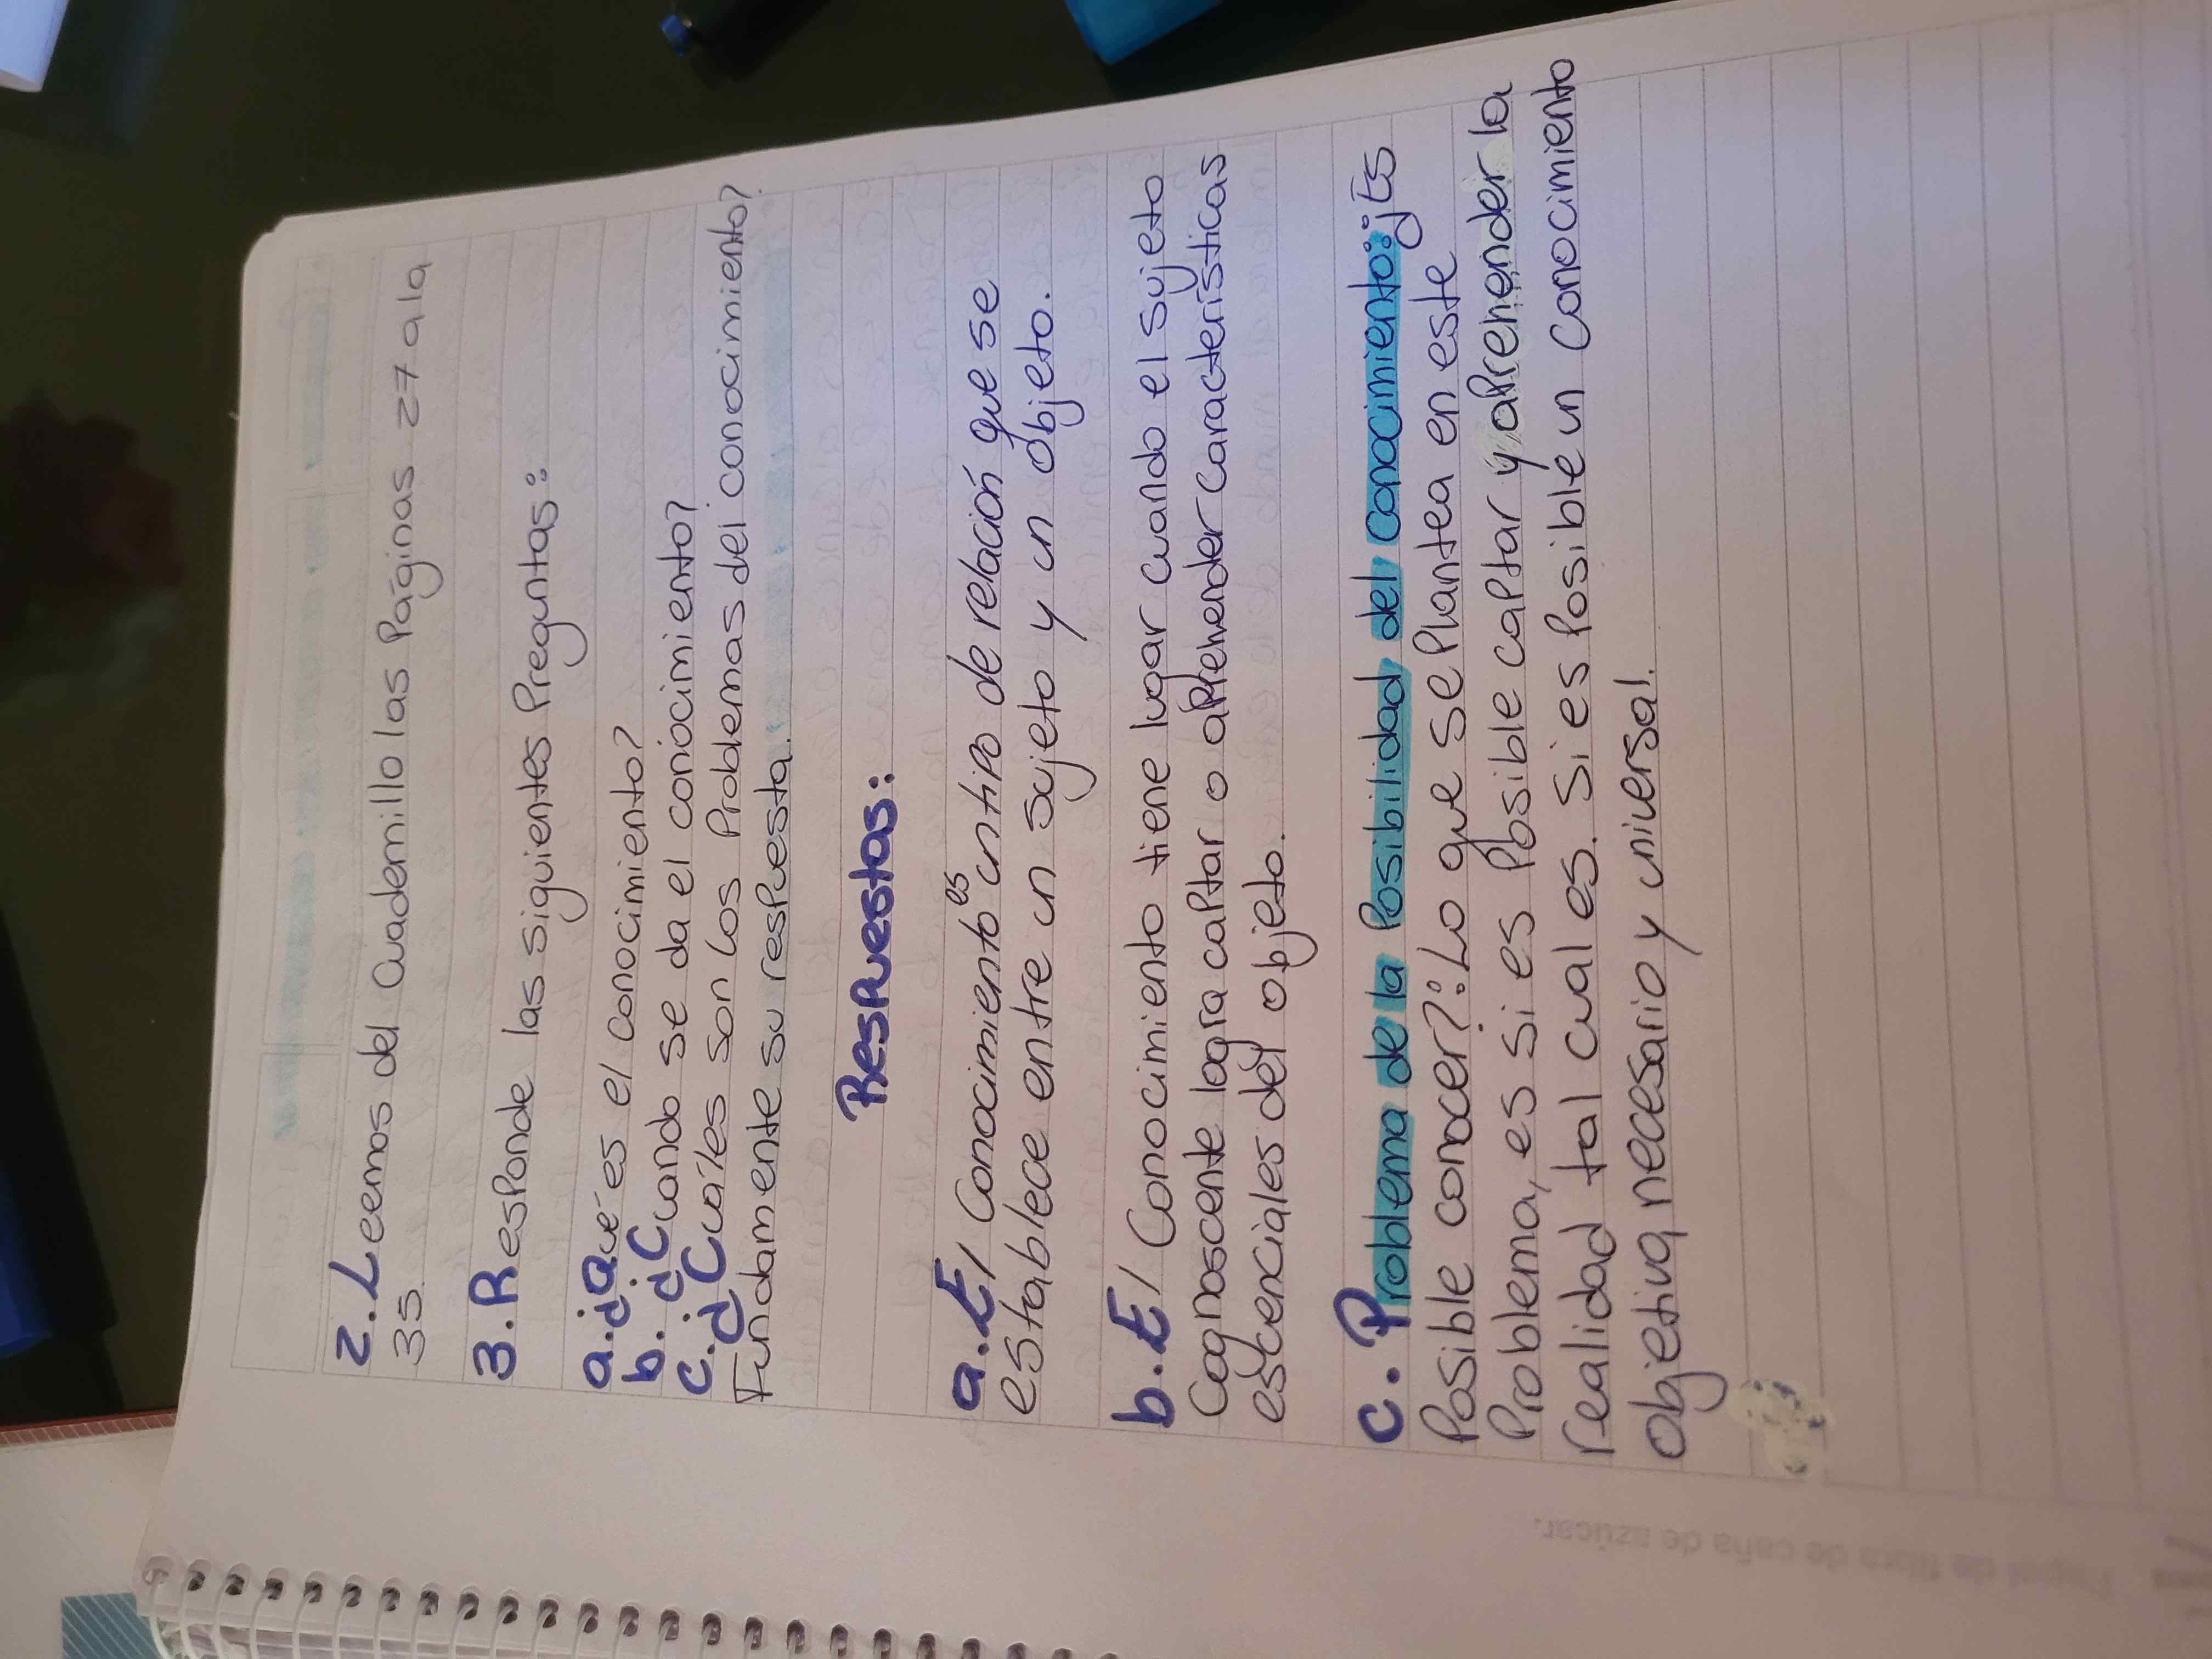 2. Leemos del Cuadernillo las Páginas 27 a la
35.
3. Responde las siguientes Preguntas:
a. ¿Qué es el conocimiento?
b. ¿Cuando se da el conocimiento?
c. ¿Cuáles son los Problemas del conocimiento?
Fundamente su respuesta.
Respuestas:
a. El Conocimiento es un tipo de relación que se
establece entre un sujeto y un objeto.
b. El Conocimiento tiene lugar cuando el sujeto
Cognoscente logra captar o aprehender características
escenciales del objeto.
c. Problema de la Posibilidad del conocimiento: ¿Es
Posible conocer?: Lo que se Plantea en este
Problema, es si es Posible captar y aprehender la
realidad tal cual es. Si es Posible un conocimiento
objetivo, necesario y universal.
Papel de fibra de caña de azúcar.